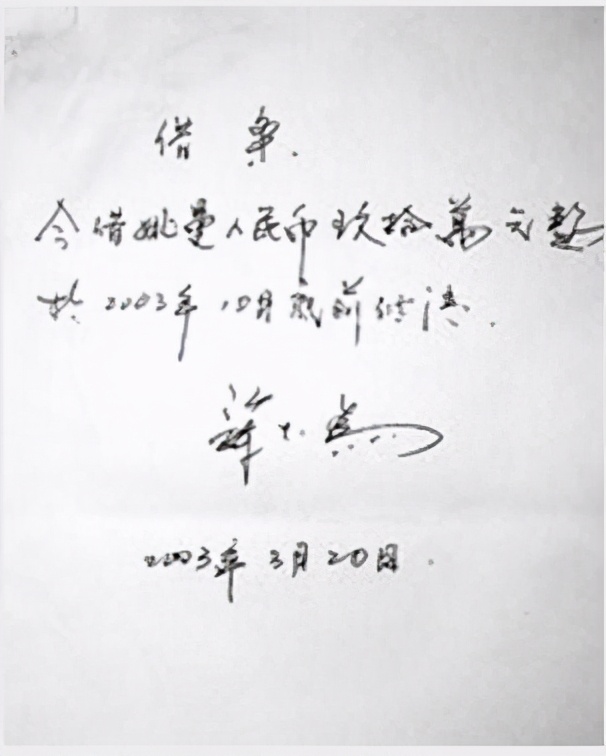 借条.
今借姚曼人民币玖拾萬元整
於2003年10月底前付清.
2003年3月20日.